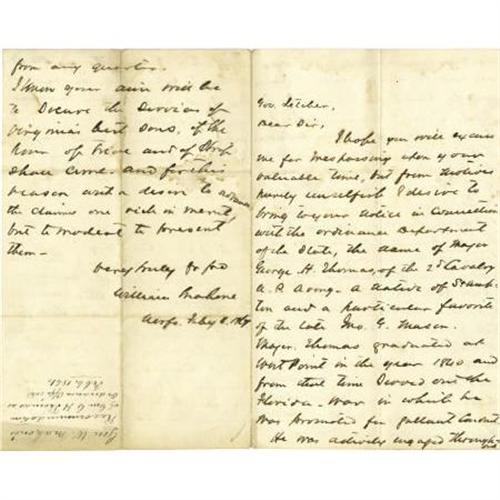 Gov. Letcher,
Dear Sir,
I hope you will excuse
me for trespassing upon your
valuable time, but from motives
purely unselfish I desire to
bring to your notice in connection
with the ordinance department
of the State, the name of Major
George H. Thomas, of the 2d Cavalry
U.S. Army - a native of
and a particular favorite
of the late Jno. Y. Mason.
Major Thomas graduated at
West Point in the year 1840 and
from that time served out the
Florida - War in which he
was promoted for gallant conduct
He was actively engaged through
from any quarter.
I know your aim will be
to secure the services of
Virginia's best sons, if the
hour of trial and of strife
shall come and for this
reason with a desire to advance
the claims one rich in merit,
but to modest to present
them -
Very truly yr frd
William Mahone
Norfo. Feby 8.
Gen. W. Mahone's
Recommendation
of Geo. H. Thomas as
Ordinance Off
Feb. 1861.